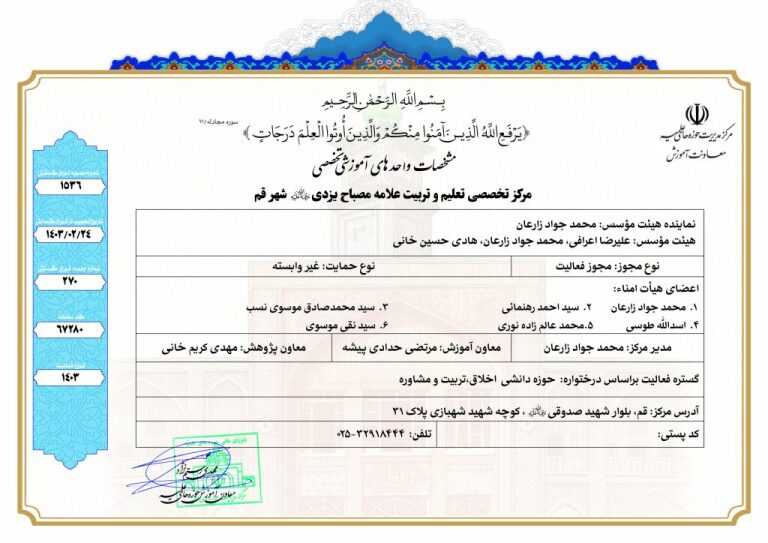 بِسْمِ اللَّهِ الرَّحْمَٰنِ الرَّحِيمِ
﴿يَرْفَعِ اللَّهُ الَّذِينَ آمَنُوا مِنْكُمْ وَالَّذِينَ أُوتُوا الْعِلْمَ دَرَجَاتٍ﴾ سوره مجادله/۱۱
مرکز مدیریت حوزه‌های علمیه
معاونت آموزش
مشخصات واحدهای آموزشی تخصصی
مرکز تخصصی تعلیم و تربیت علامه مصباح یزدی شهر قم
نماینده هیئت مؤسس: محمد جواد زارعان
هیئت مؤسس: علیرضا اعرافی، محمد جواد زارعان، هادی حسین خانی
نوع مجوز: مجوز فعالیت نوع حمایت: غیر وابسته
اعضای هیأت امناء:
۱. محمد جواد زارعان ۲. سید احمد رهنمائی ۳. سید محمدصادق موسوی نسب
۴. اسدالله طوسی ۵.محمد عالم زاده نوری ۶. سید نقی موسوی
مدیر مرکز: محمد جواد زارعان معاون آموزش: مرتضی حدادی پیشه معاون پژوهش: مهدی کریم خانی
گستره فعالیت براساس درختواره: حوزه دانشی اخلاق،تربیت و مشاوره
آدرس مرکز: قم، بلوار شهید صدوقی ، کوچه شهید شهبازی پلاک ۳۱
کد پستی: تلفن: ۳۲۹۱۸۴۴۴-۰۲۵
شماره مصوبه شورای گسترش
۱۵۳۶
تاریخ تصویب در شورای گسترش
۱۴۰۳/۰۲/۲۴
شماره جلسه شورای گسترش
۲۷۰
کد سامانه
۶۷۲۸۰
۱۴۰۳
معاون آموزش حوزه‌های علمیه